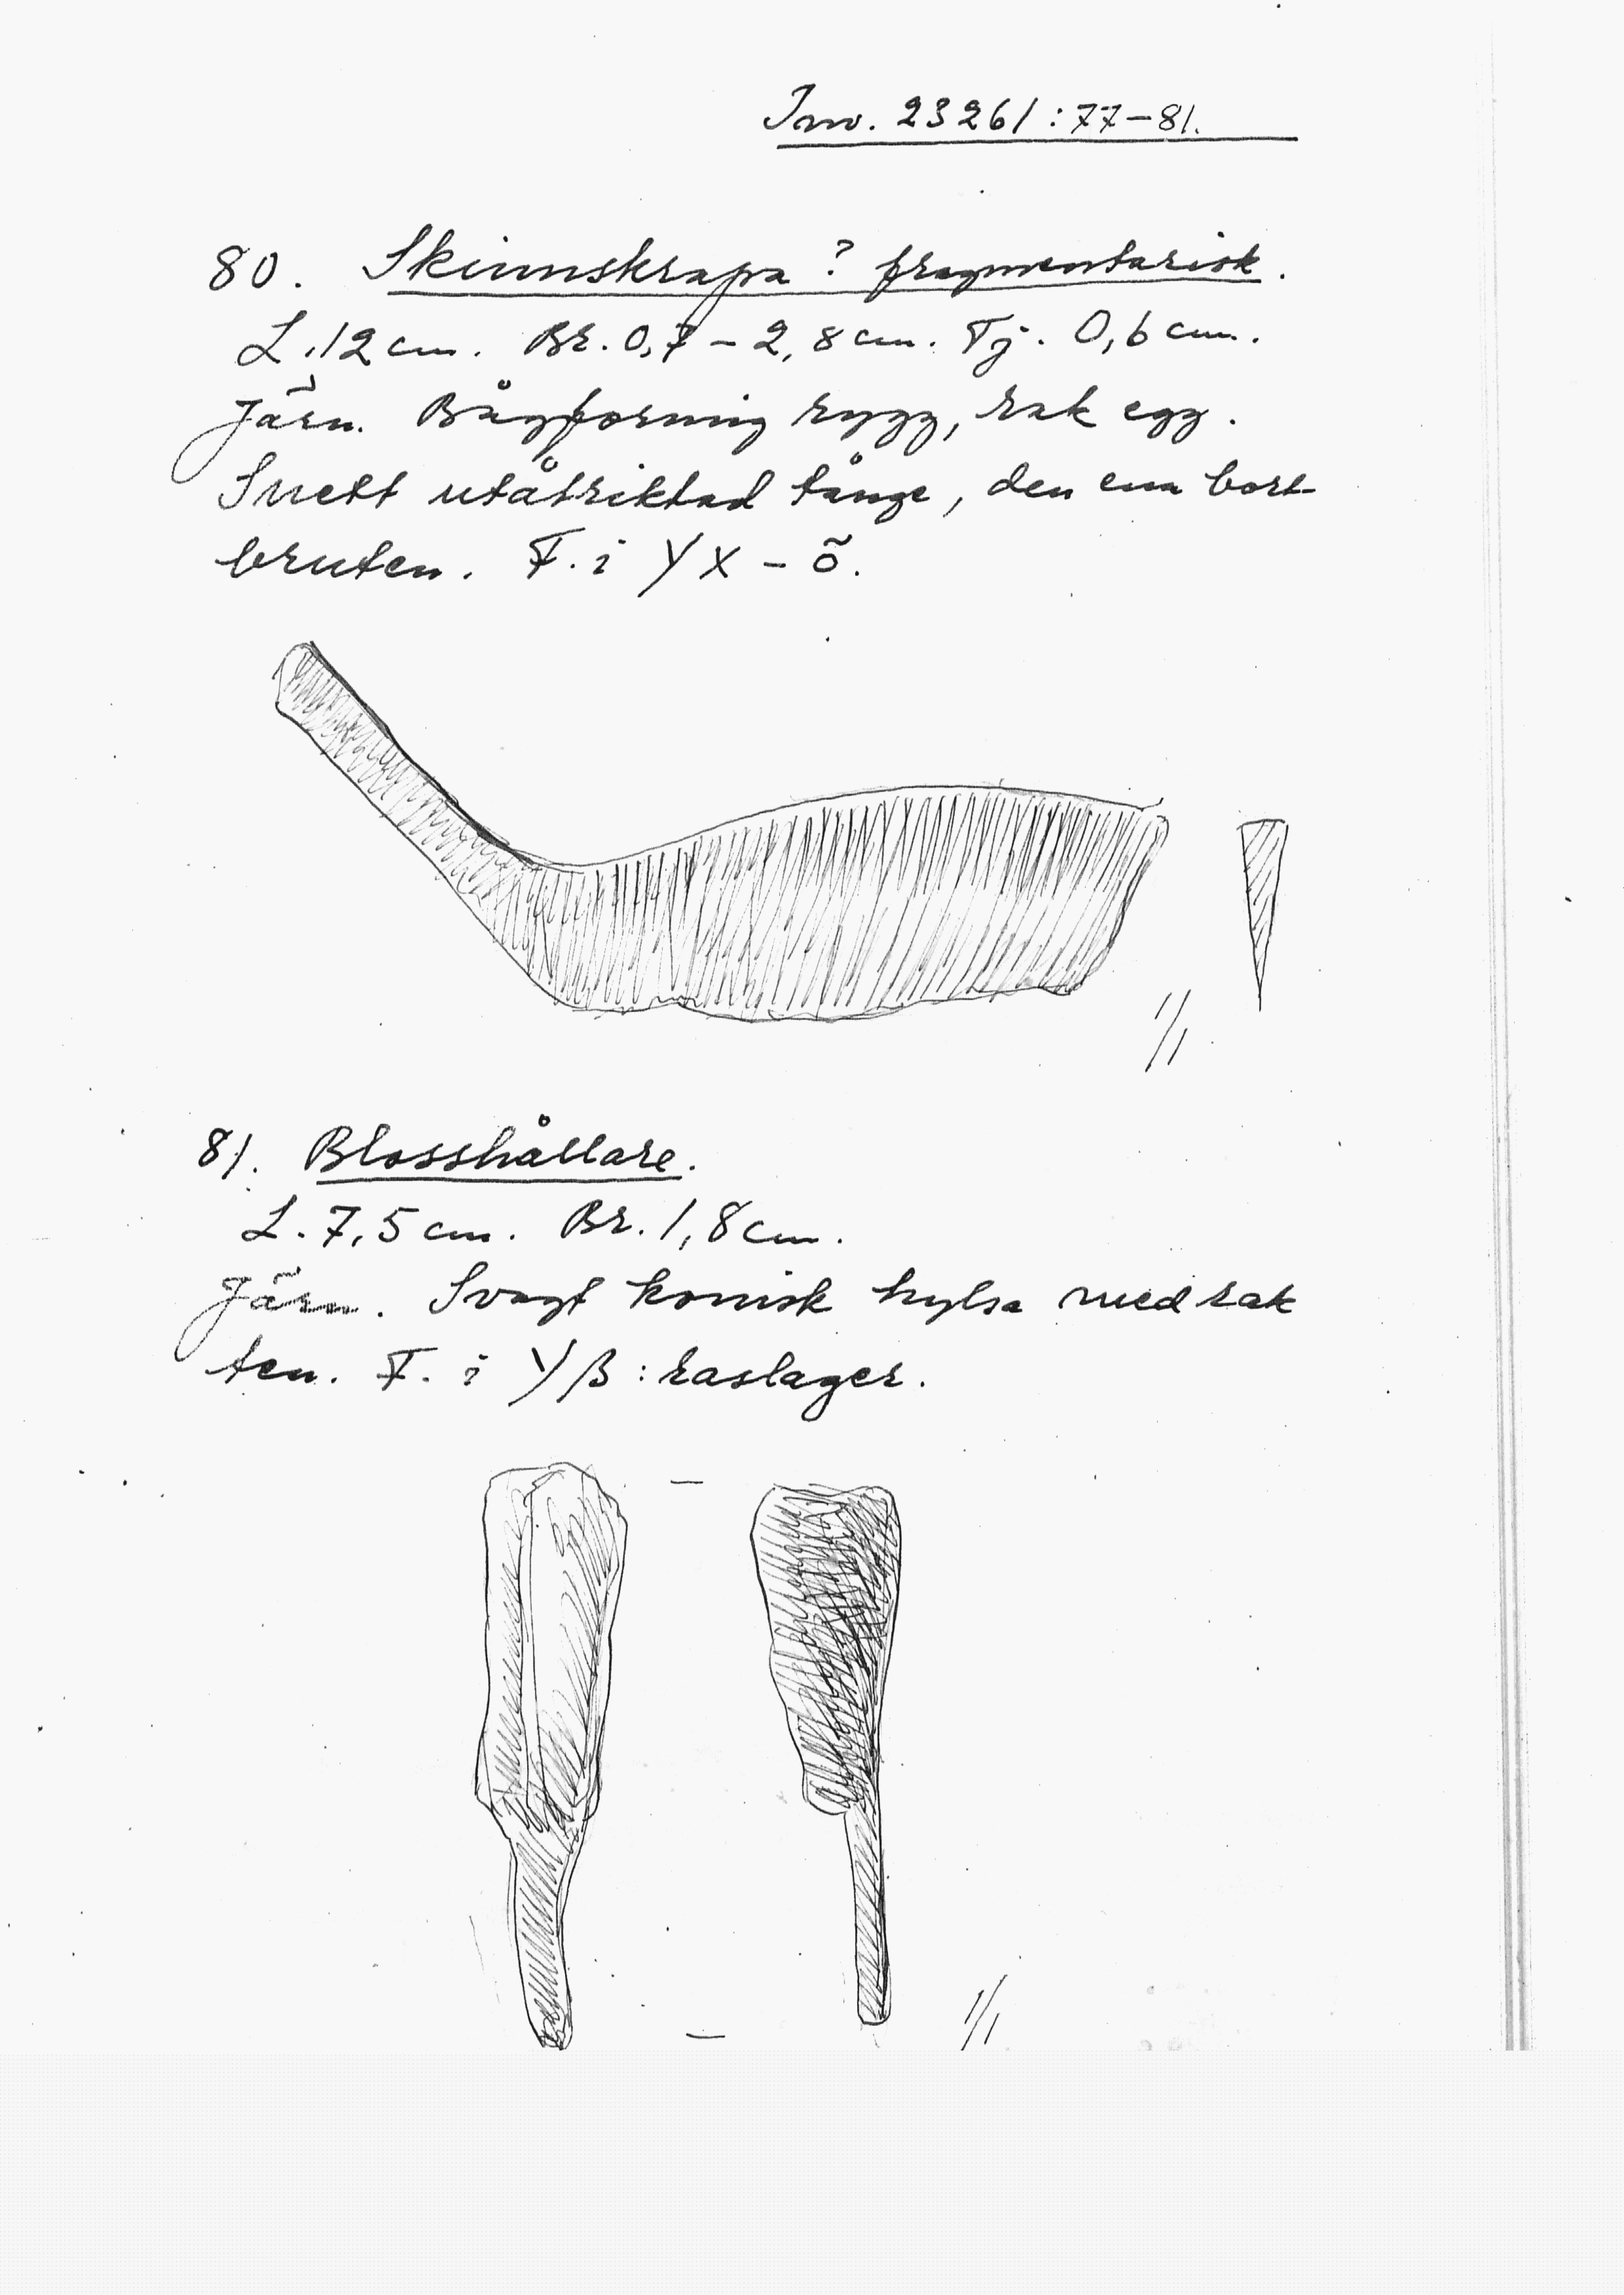 Inv. 23261:77-81.
80. Skinnskrapa? fragmentarisk.
L. 12 cm. Br. 0,7 - 2,8 cm. Tj. 0,6 cm.
Järn. Bågformig rygg, rak egg.
Snett utåtriktad tånge, den ena bort-
bruten. F. i YX - õ.
1/1
81. Blosshållare.
L. 7,5 cm. Br. 1,8 cm.
Järn. Svagt konisk hylsa med rak
ten. F. i Yβ: raslager.
1/1